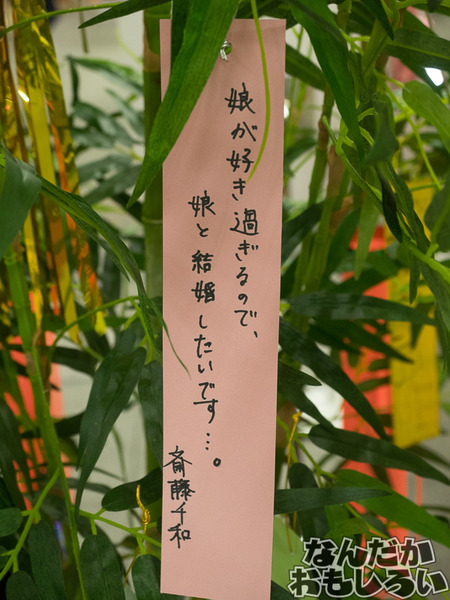 娘が好き過ぎるので、
娘と結婚したいです…。
斎藤千和
なんだか
おもしろい